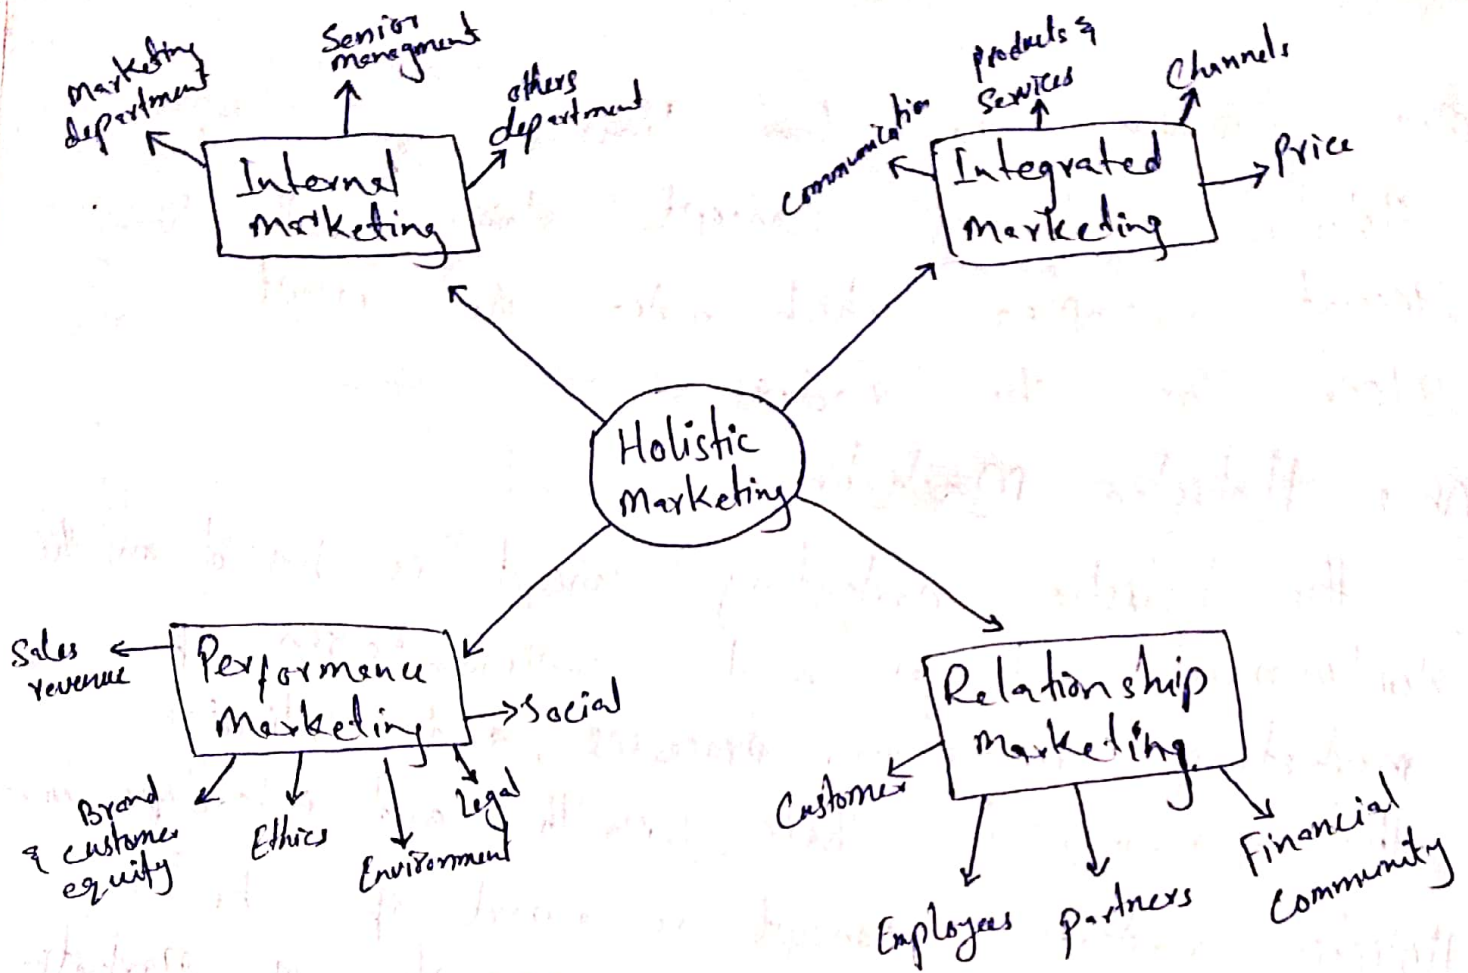 Marketing
department
Senior
managment
others
department
Internal
Marketing
communication
products &
Services
Channels
Price
Integrated
Marketing
Holistic
Marketing
Sales
revenue
Performance
Marketing
Social
Brand
& customer
equity
Ethics
Environment
Legal
Relationship
Marketing
Customer
Employees
partners
Financial
Community